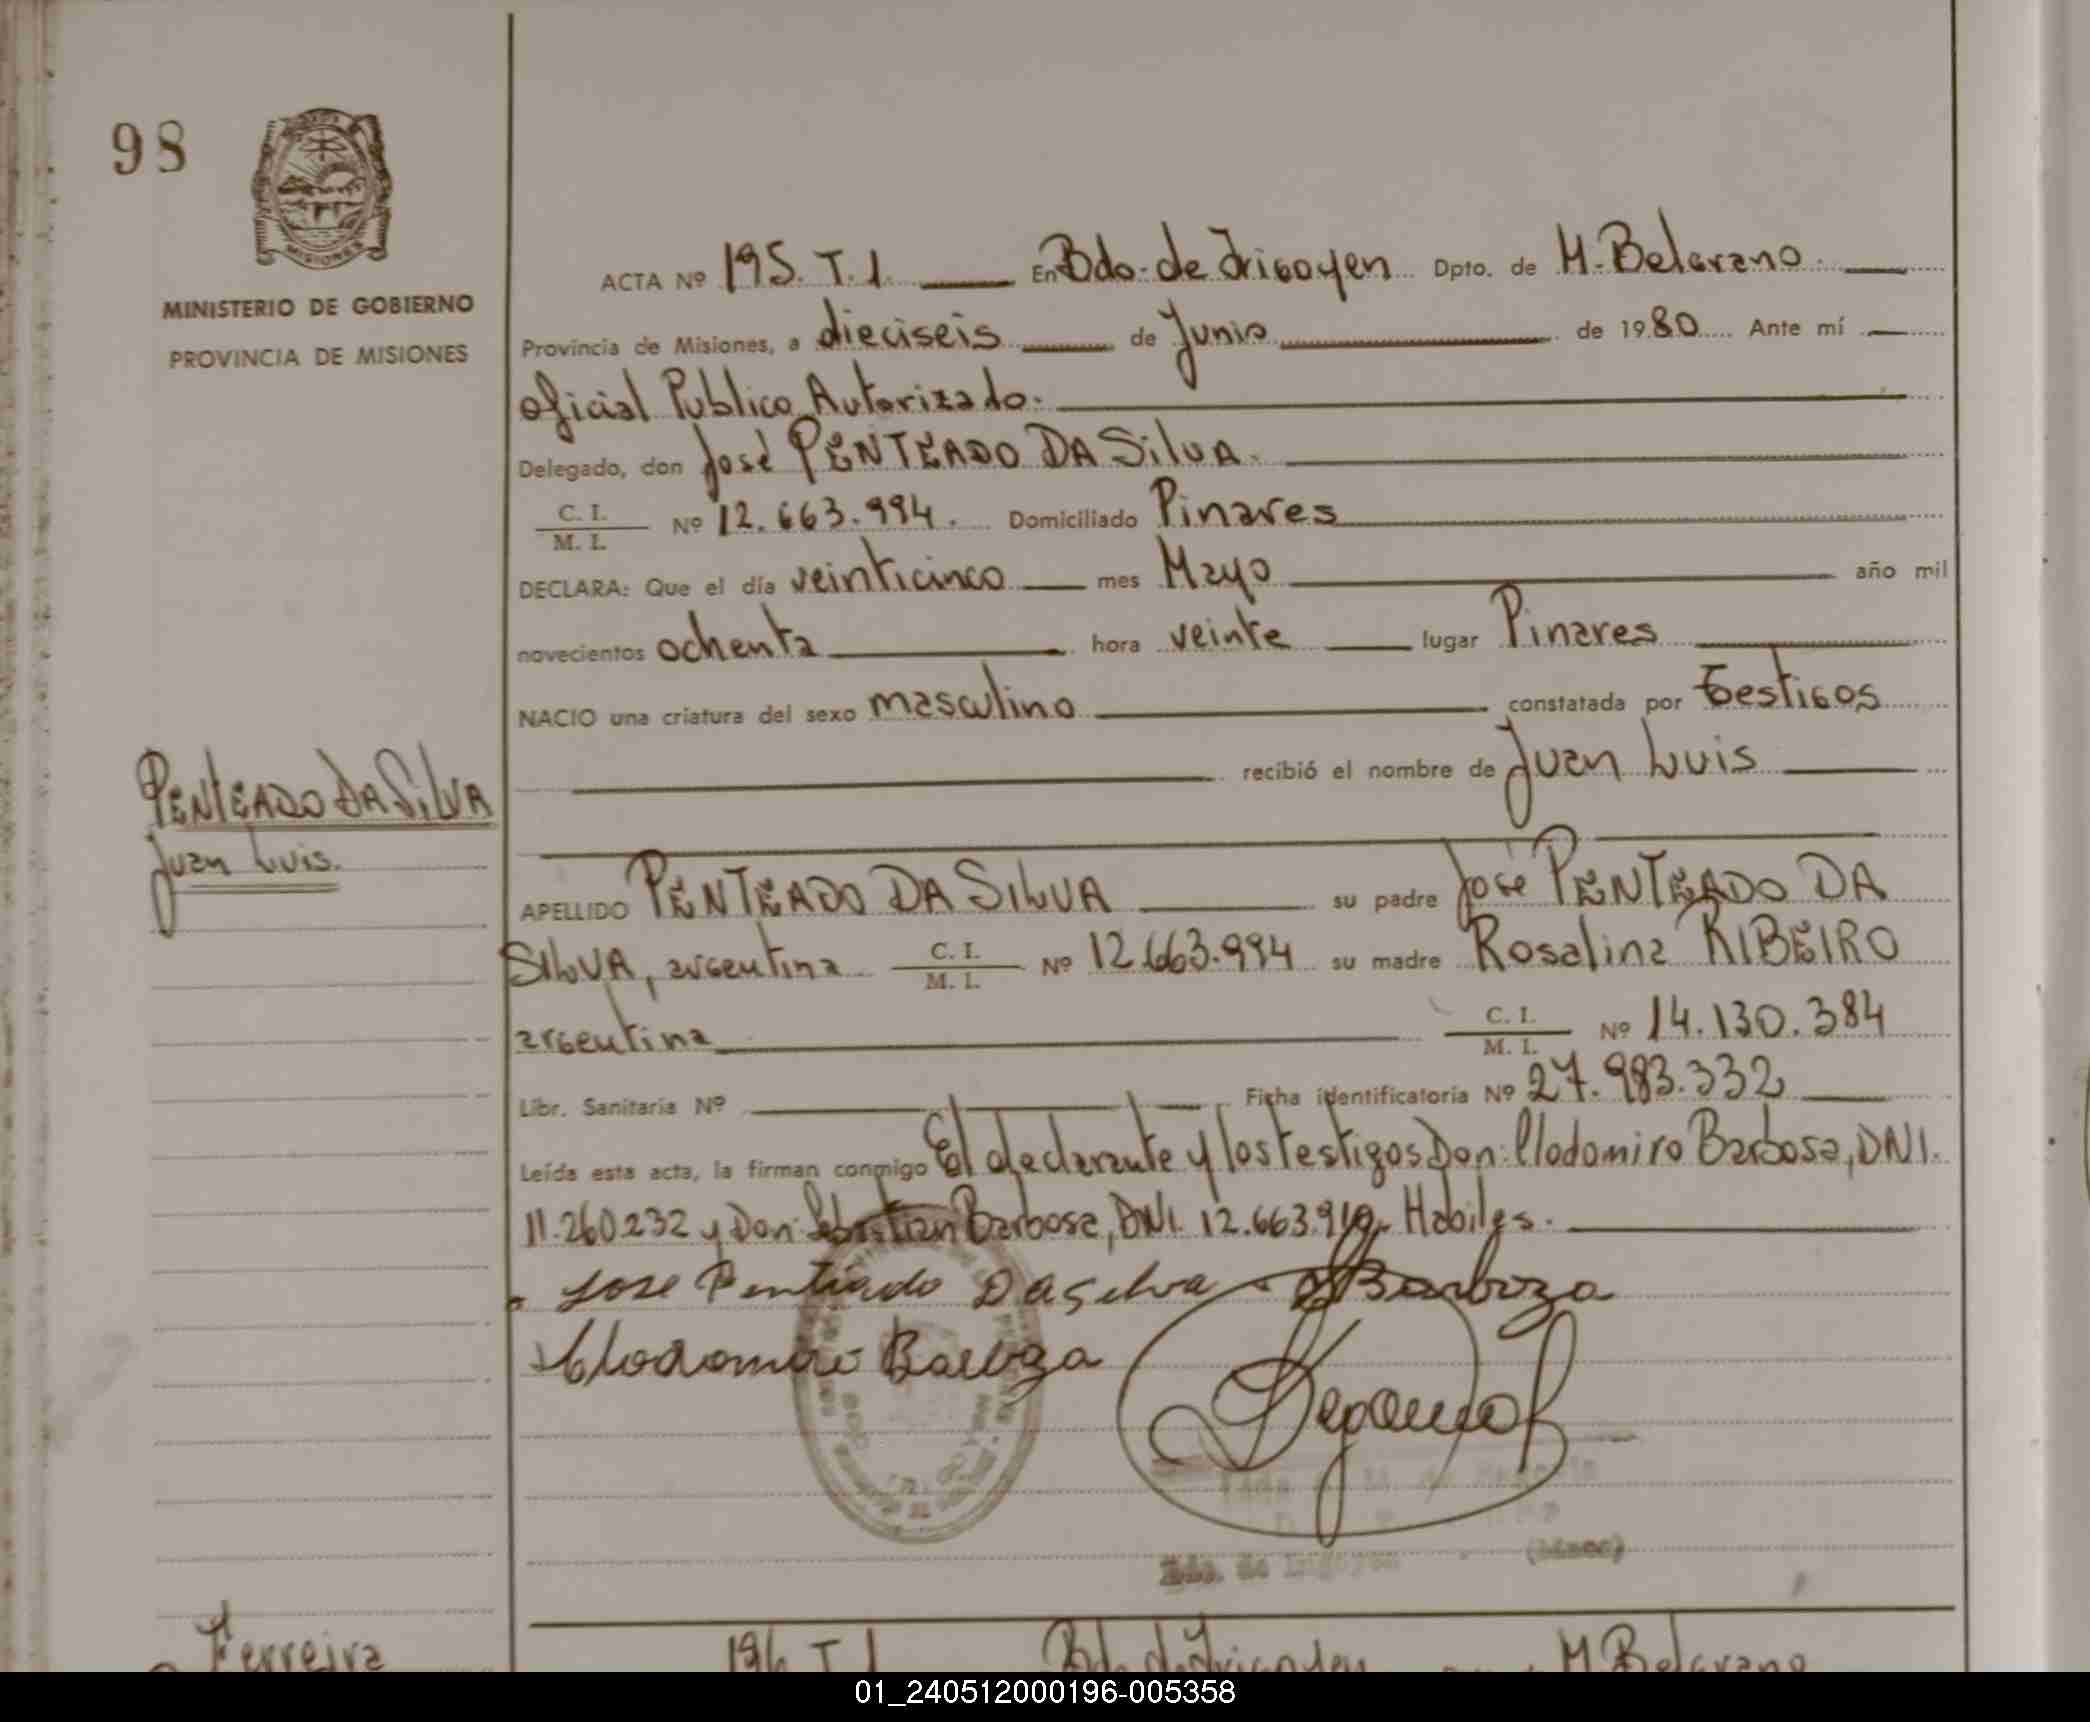 98
MISIONES
MINISTERIO DE GOBIERNO
PROVINCIA DE MISIONES
ACTA Nº 195. T. I. En Bdo. de Irigoyen Dpto. de M. Belgrano.
Provincia de Misiones, a dieciseis de Junio de 1980 Ante mí
oficial Publico Autorizado.
Delegado, don José PENTEADO DA SilVA.
C. I.
M. I. Nº 12.663.994. Domiciliado Pinares
DECLARA: Que el día veinticinco mes Mayo año mil
novecientos ochenta hora veinte lugar Pinares
NACIO una criatura del sexo masculino constatada por testigos
recibió el nombre de Juan Luis
PENTEADO DA SILVA
Juan Luis.
APELLIDO PENTEADO DA SILVA su padre José PENTEADO DA
SILVA, argentina C. I. M. I. Nº 12.663.994 su madre Rosalina RIBEIRO
argentina C. I. M. I. Nº 14.130.384
Libr. Sanitaria Nº Ficha identificatoria Nº 27.983.332
Leída esta acta, la firman conmigo El declarante y los testigos Don: Clodomiro Barbosa, DNI.
11.260.232 y Don: Sebastian Barbosa, DNI. 12.663.919, Habiles.
Jose Pentiado Da Silva Barboza
Clodomiro Barboza
Bdo. de Irigoyen (Mnes)
Ferreira
196 T I Bdo. de Irigoyen M. Belgrano
01_240512000196-005358